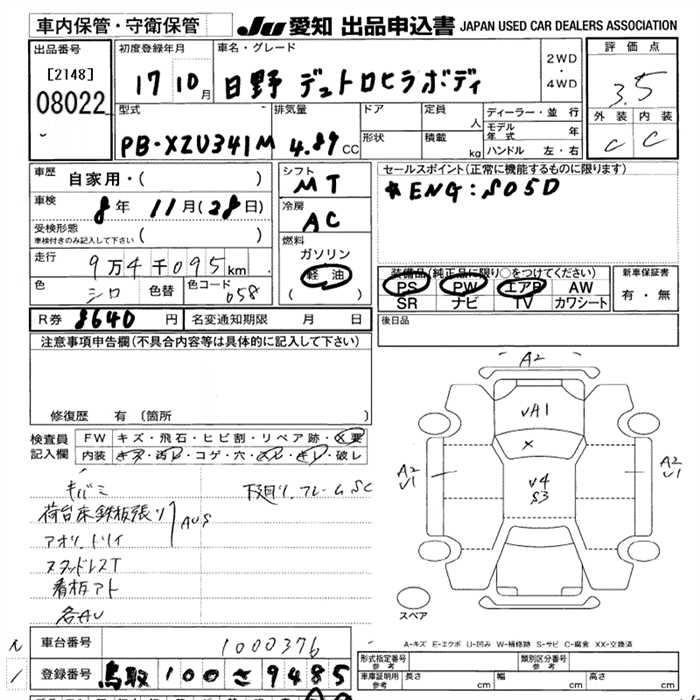 車内保管・守衛保管
JU 愛知 出品申込書 JAPAN USED CAR DEALERS ASSOCIATION
出品番号
[2148]
08022
初度登録年月
17 10月
車名・グレード
日野 デュトロヒラボディ
2WD
・
4WD
評価点
3.5
外装 内装
C C
型式
PB-XZU341M
排気量
4.89 CC
ドア
形状
定員
人
積載
kg
ディーラー・並行
モデル年式 年
ハンドル 左・右
車歴
自家用・( )
車検
8年 11月(28日)
受検形態
車検付きのみ記入して下さい ( )
走行
9万4千095km
色
シロ
色替
色コード
058
シフト
MT
冷房
AC
燃料
ガソリン
軽油
( )
セールスポイント(正常に機能するものに限ります)
*ENG:S05D
装備品(純正品に限り○をつけてください)
PS PW エアB AW
SR ナビ TV カワシート
新車保証書
有・無
R券 8640 円
名変通知期限 月 日
後日品
注意事項申告欄(不具合内容等は具体的に記入して下さい)
修復歴 有(箇所 )
検査員記入欄
FW キズ・飛石・ヒビ割・リペア跡・X要
内装 キズ・汚レ・コゲ・穴・スレ・キレ・破レ
キバミ
下廻り、フレームSC
荷台床鉄板張り
AUS
アオリ、トリイ
スタッドレスT
看板アト
各AU
A2
VA1
X
V4
S3
A2
V1
A2
V1
スペア
A-キズ E-エクボ U-凹み W-補修跡 S-サビ C-腐食 XX-交換済
車台番号
1000376
登録番号
鳥取 100 さ 9485
形式指定番号
参考
類別区分番号
参考
車庫証明用
参考
長さ cm
幅 cm
高さ cm